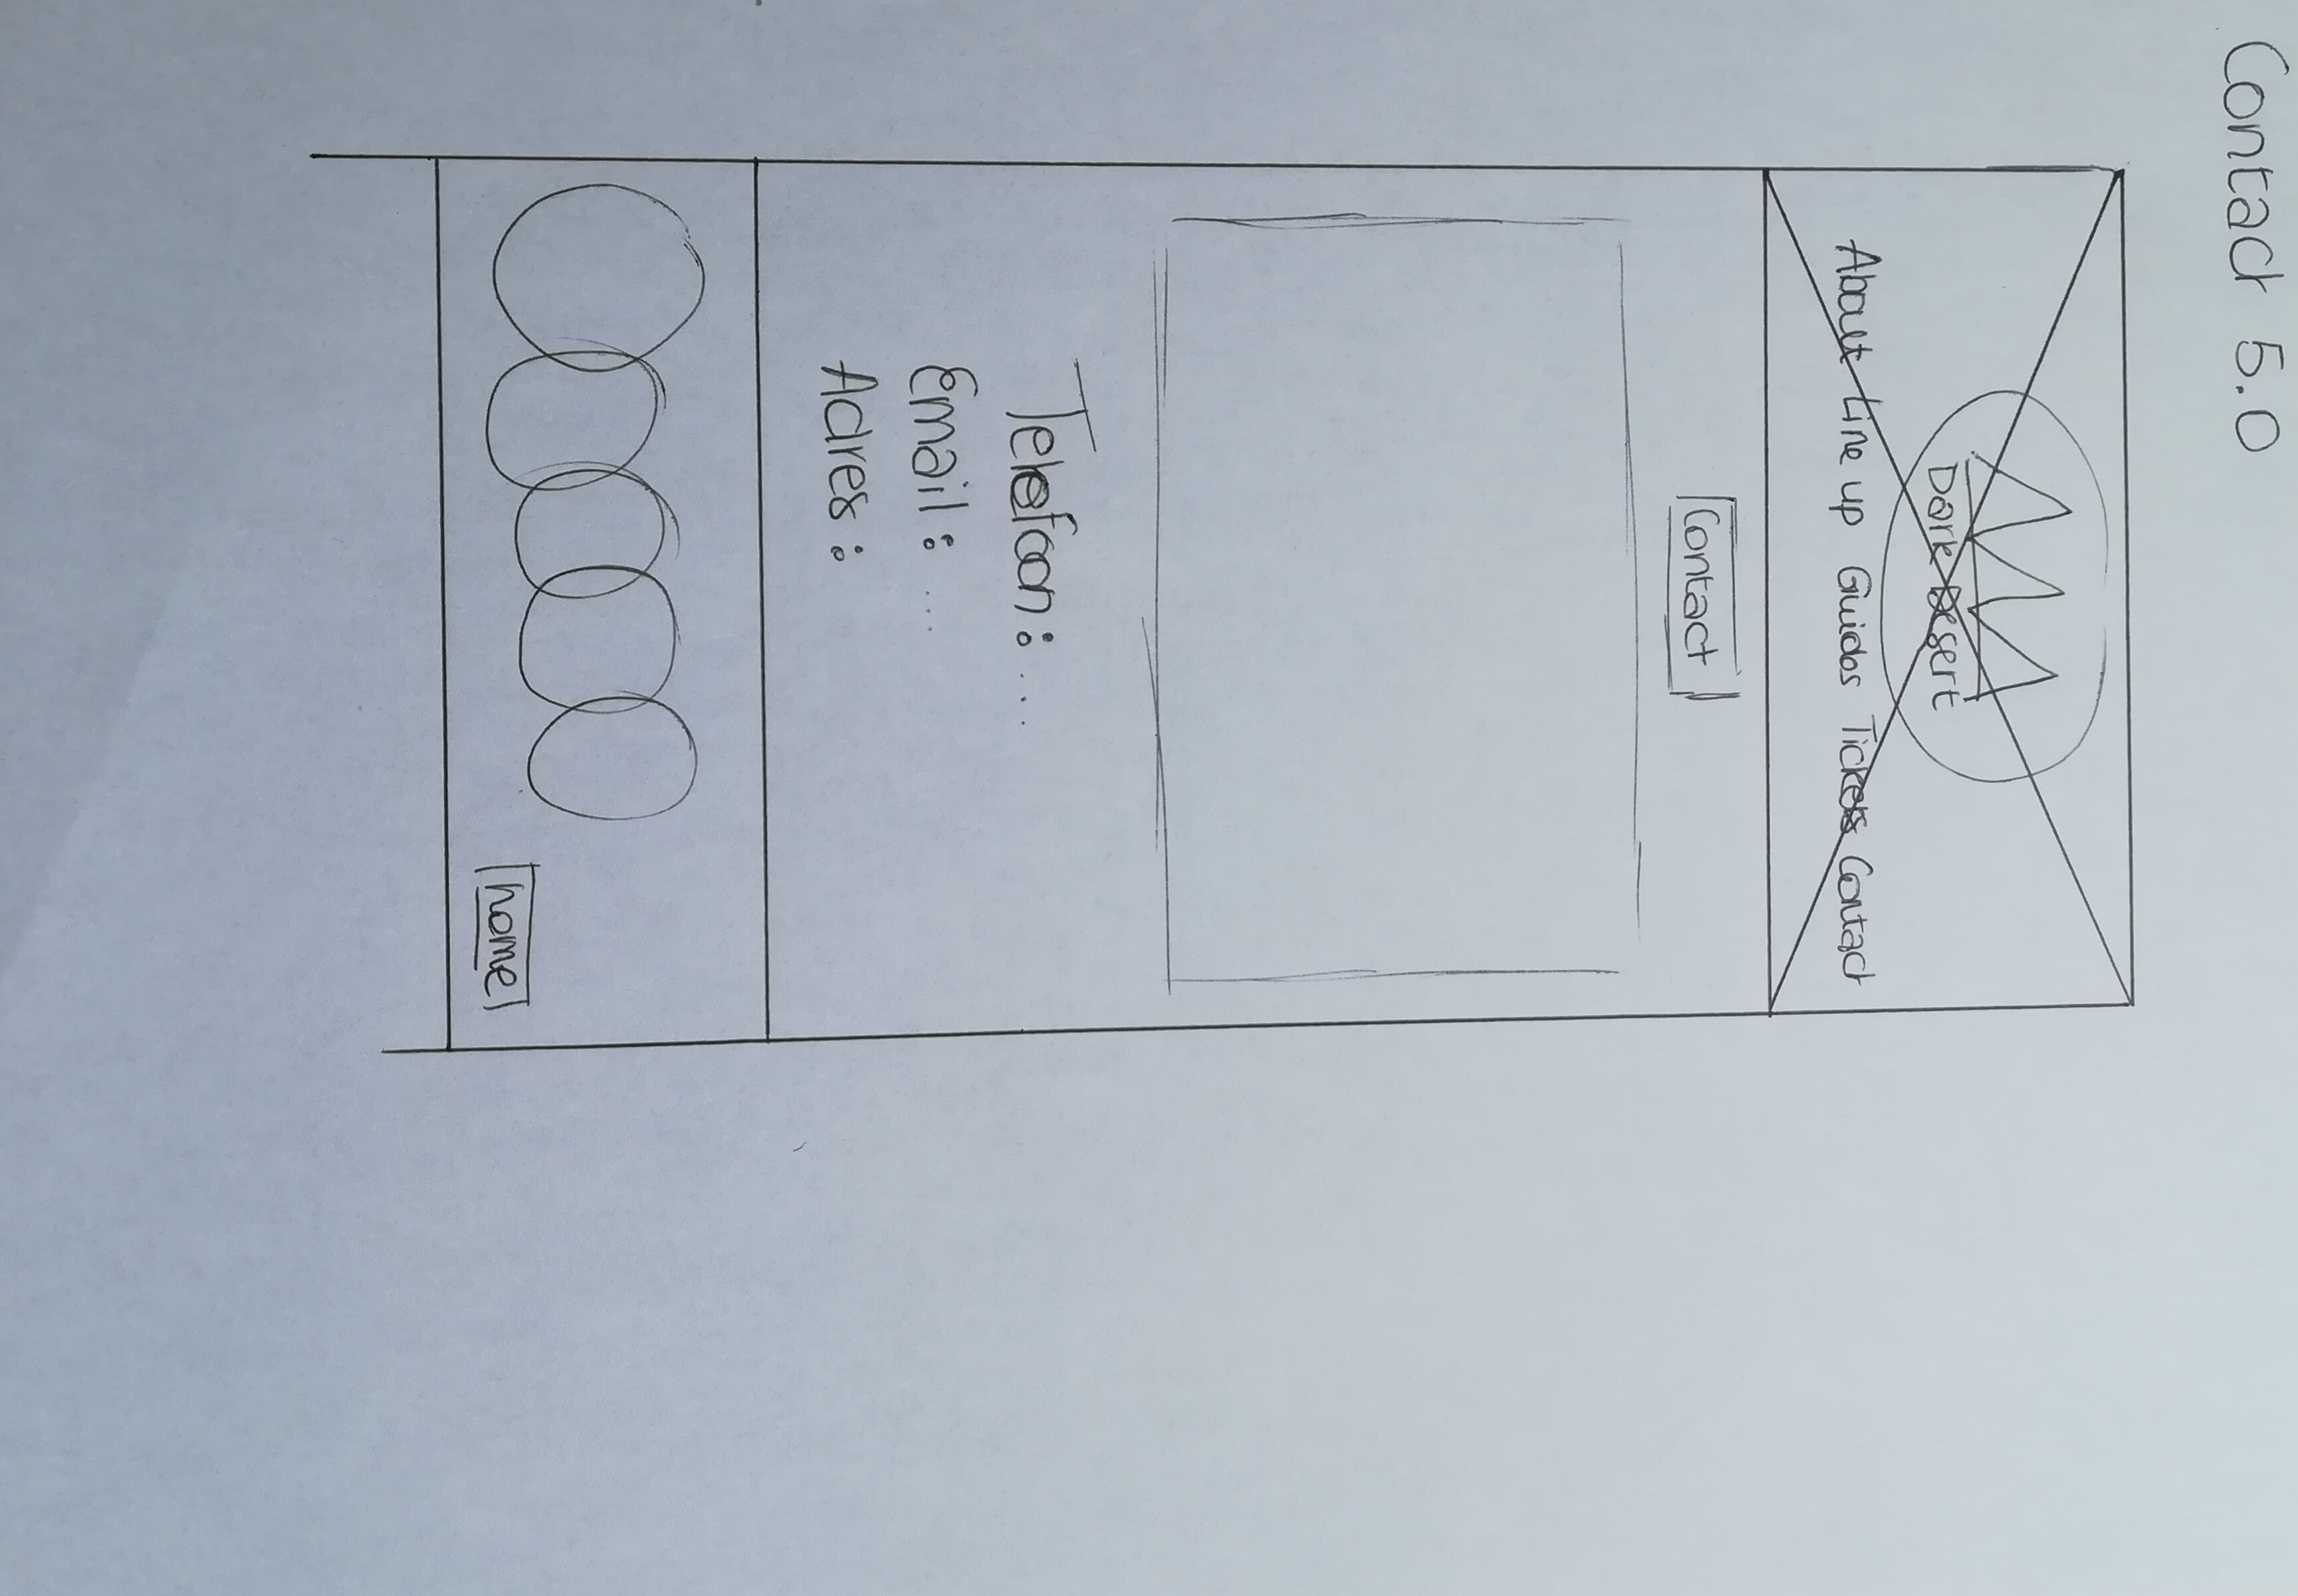 Contact 5.0
Dark Desert
About Line up Guides Tickets Contact
Contact
Telefoon: ...
Email: ...
Adres:
home